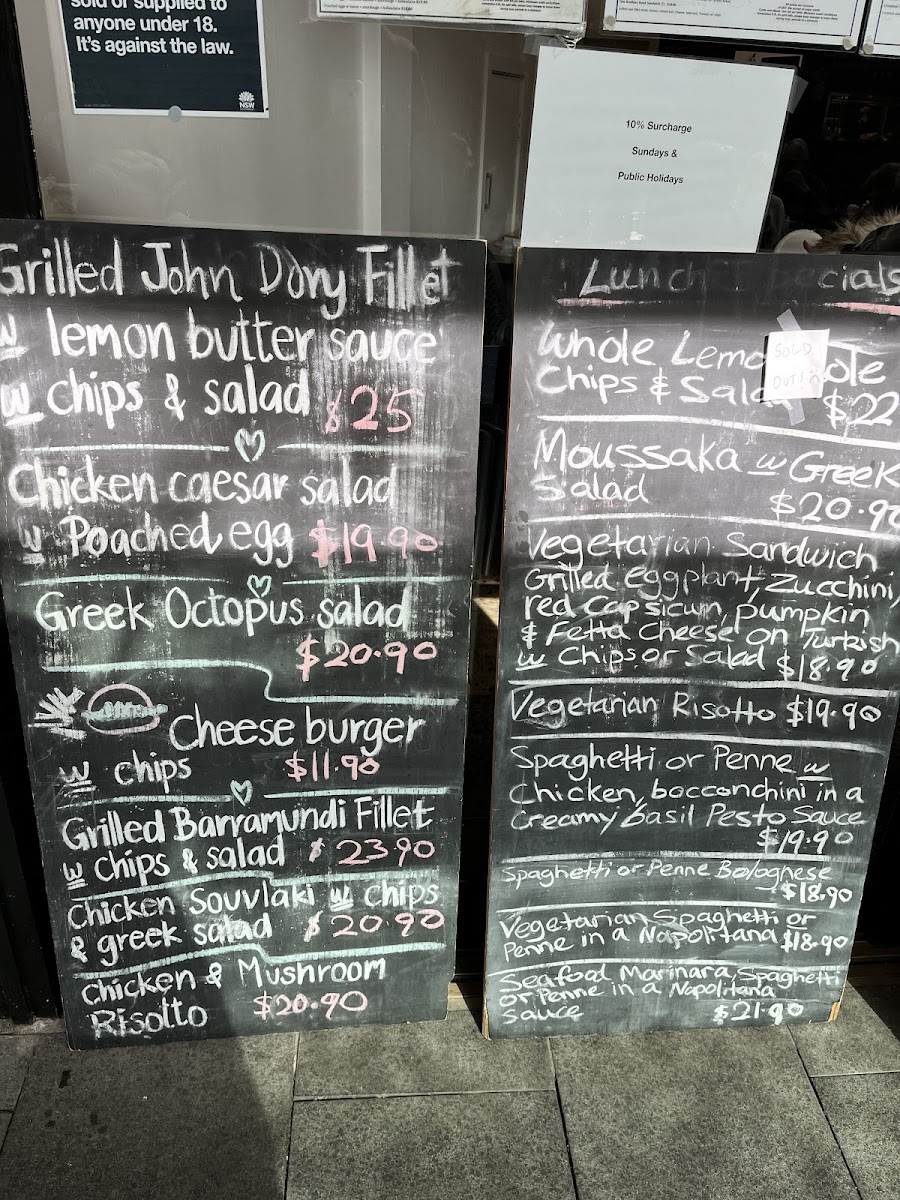 sold or supplied to
anyone under 18.
It's against the law.
NSW
10% Surcharge
Sundays &
Public Holidays
Grilled John Dory Fillet
w lemon butter sauce
w chips & salad $25
Chicken caesar salad
w Poached egg $19.90
Greek Octopus salad
$20.90
Cheese burger
w chips $11.90
Grilled Barramundi Fillet
w chips & salad $23.90
Chicken Souvlaki w chips
& greek salad $20.90
Chicken & Mushroom
Risotto $20.90
Lunch Specials
Whole Lemon Sole
Chips & Salad $22
SOLD
OUT!
Moussaka w Greek
Salad
$20.90
Vegetarian Sandwich
Grilled eggplant, Zucchini,
red capsicum, pumpkin
& Fetta Cheese on Turkish
w Chips or Salad $18.90
Vegetarian Risotto $19.90
Spaghetti or Penne w
Chicken, bocconchini in a
Creamy basil Pesto Sauce
$19.90
Spaghetti or Penne Bolognese
$18.90
Vegetarian Spaghetti or
Penne in a Napolitana $18.90
Seafood Marinara Spaghetti
or Penne in a Napolitana
sauce $21.90